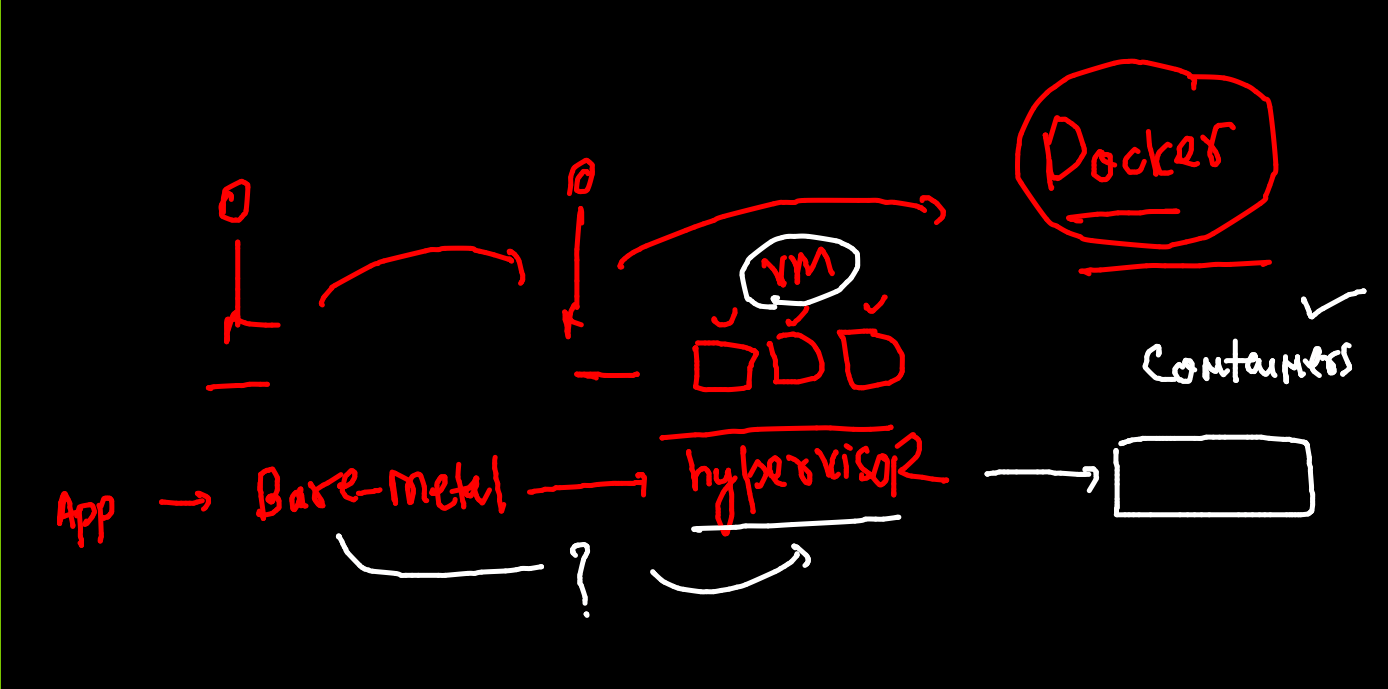 Docker
VM
Containers
App → Bare-Metal → hypervisor →
?